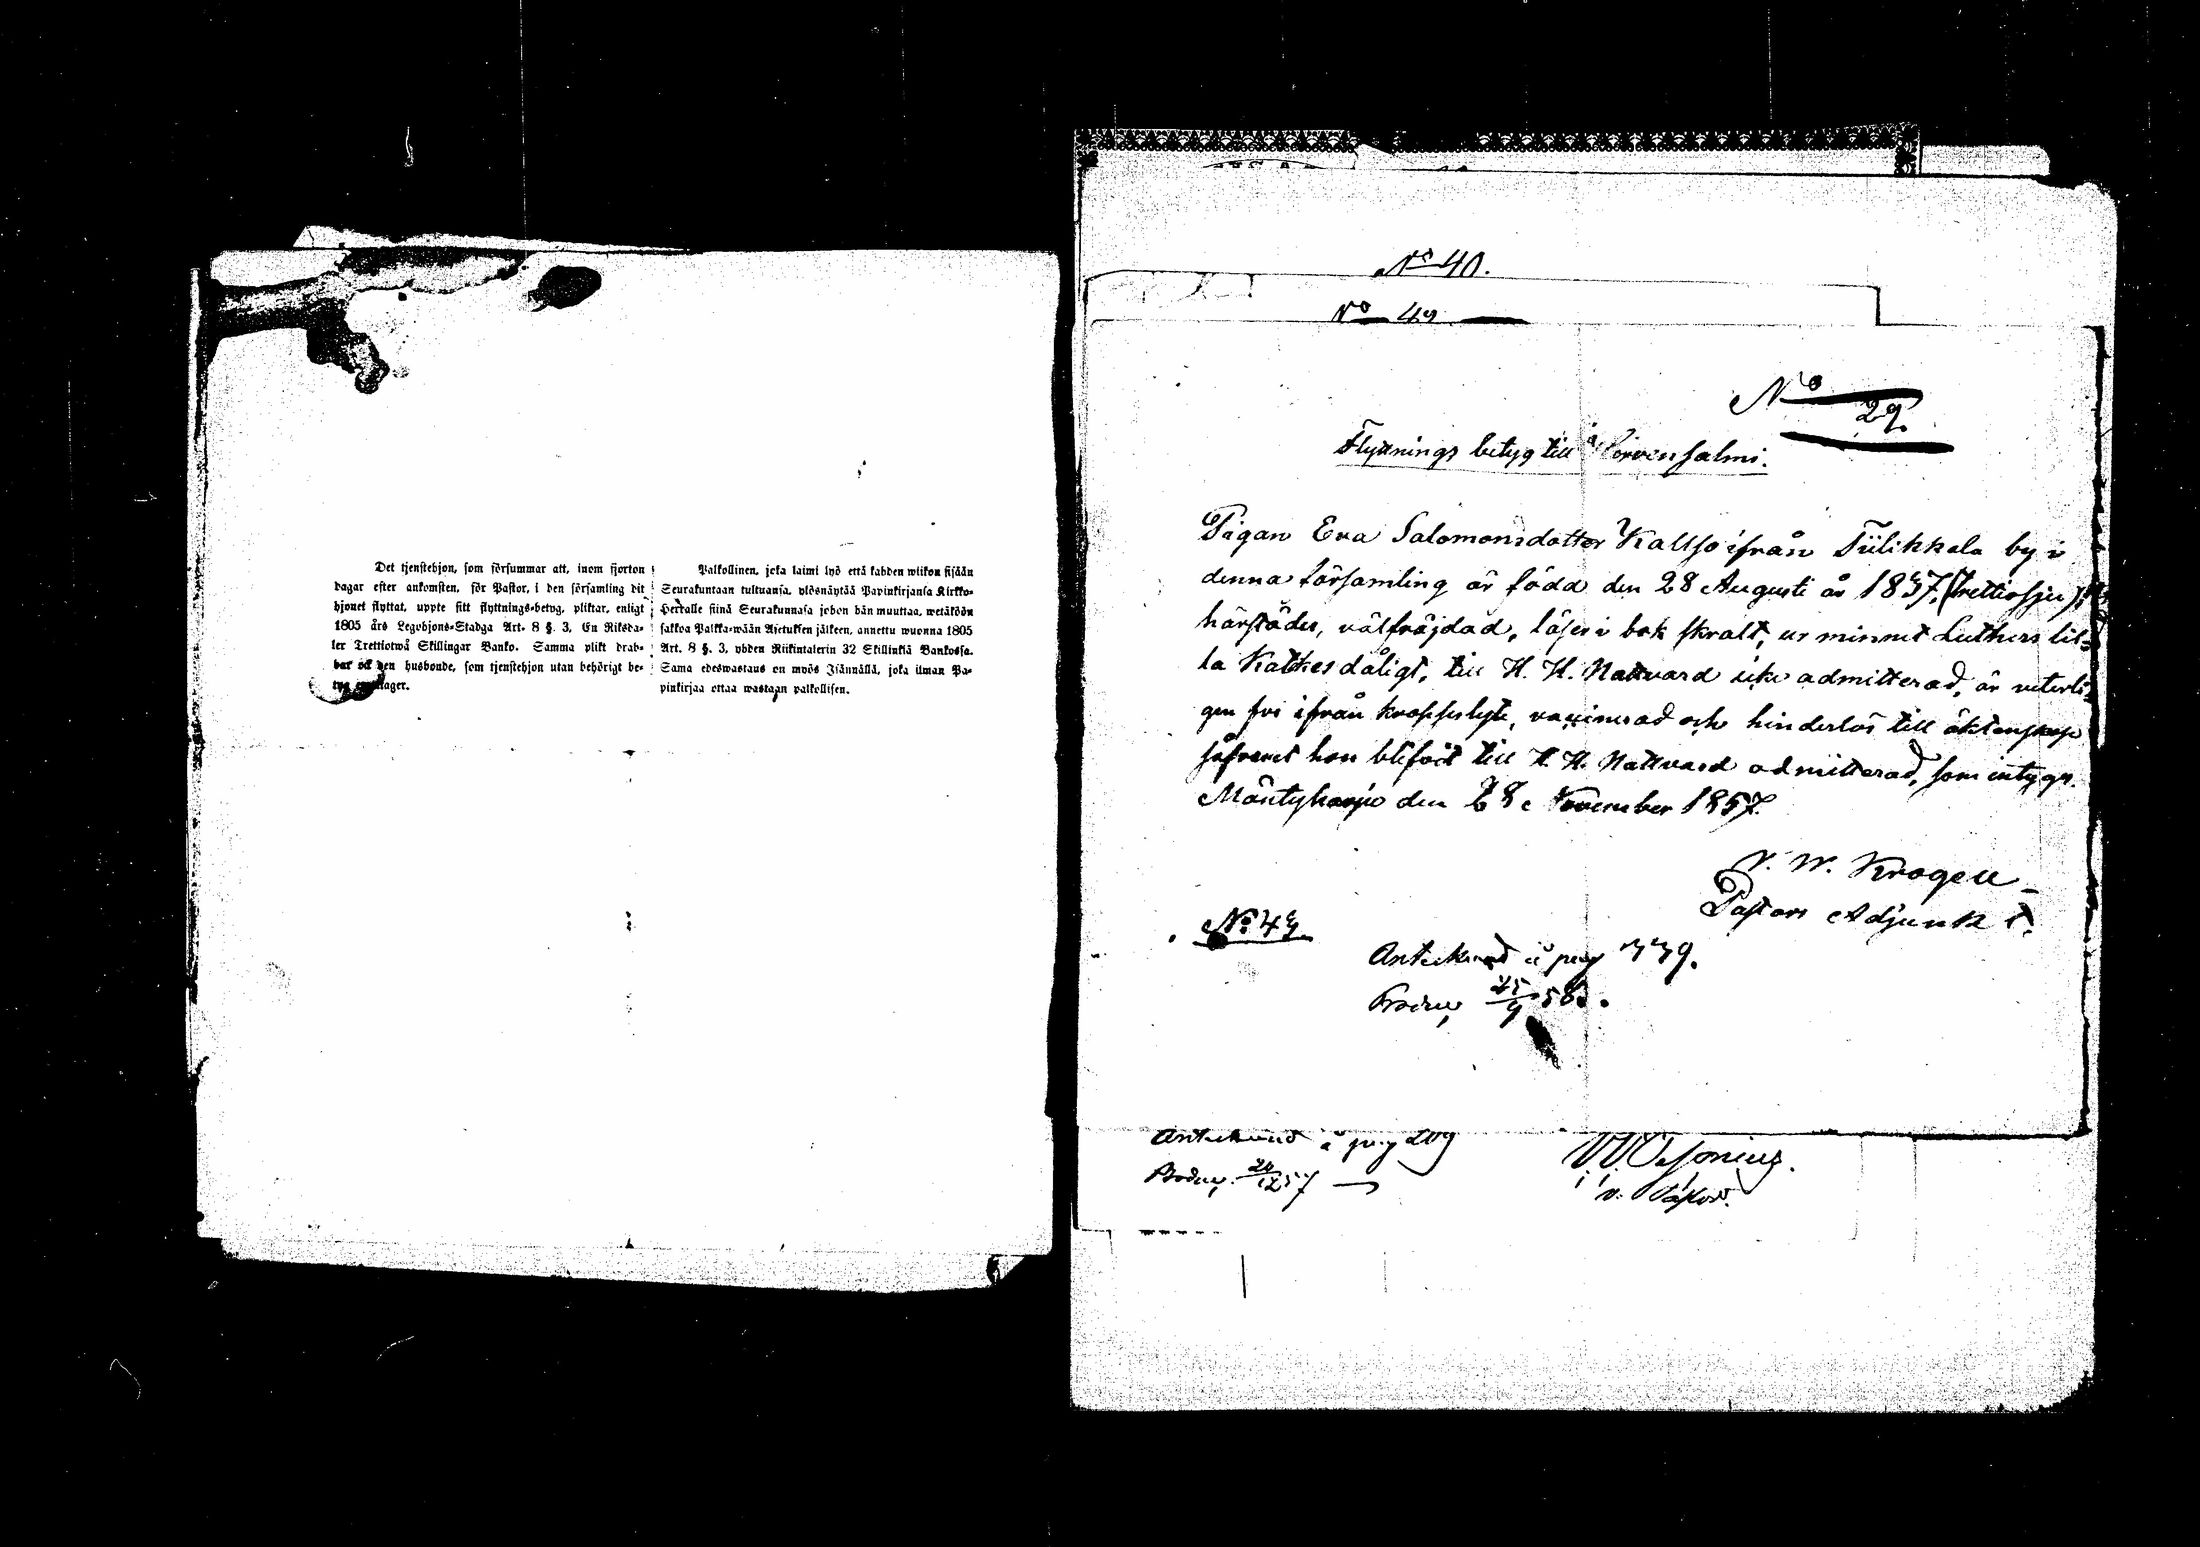 Det tjenstehjon, som försummar att, inom fjorton
dagar efter ankomsten, för Pastor, i den församling dit
hjonet flyttat, uppte sitt flyttnings-betyg, pliktar, enligt
1805 års Legohjons-Stadga Art. 8 §. 3, En Riksda-
ler Trettiotwå Skillingar Banko. Samma plikt drab-
bar ock den husbonde, som tjenstehjon utan behörigt be-
tyg lager.
Palkollinen, joka laimi lyö että kahden wiikon sisään
Seurakuntaan tultuansa, ylösnäytää Papinkirjansa Kirkko-
Herralle siinä Seurakunnasa johon hän muuttaa, wetäköön
sakkoa Palkka-wään Asetuksen jälkeen, annettu wuonna 1805
Art. 8 §. 3, yhden Riikintalerin 32 Skillinkiä Bankossa.
Sama edeswastaus on myös Isännällä, joka ilman Pa-
pinkirjaa ottaa wastaan palkollisen.
No 40.
No 49
No 29.
Flyttnings betyg till Hirvensalmi.
Pigan Eva Salomonsdotter Kallio ifrån Tiilikkala by i
denna församling är född den 28 Augusti år 1837, (trettiosju)
härstädes, välfräjdad, läser i bok skralt, ur minnet Luthers lil-
la Kathes dåligt, till H. H. Nattvard icke admitterad, är veterli-
gen fri ifrån kroppslyte, vaxinerad och hinderlös till äktenskap
såframt hon blifvit till H. H. Nattvard admitterad, som intygas.
Mäntyharju den 28 November 1857.
N. W. Krogell
Pastors Adjunkt.
No 43.
Antecknad å pag 339.
25/9 58.
Antecknad å pag 209